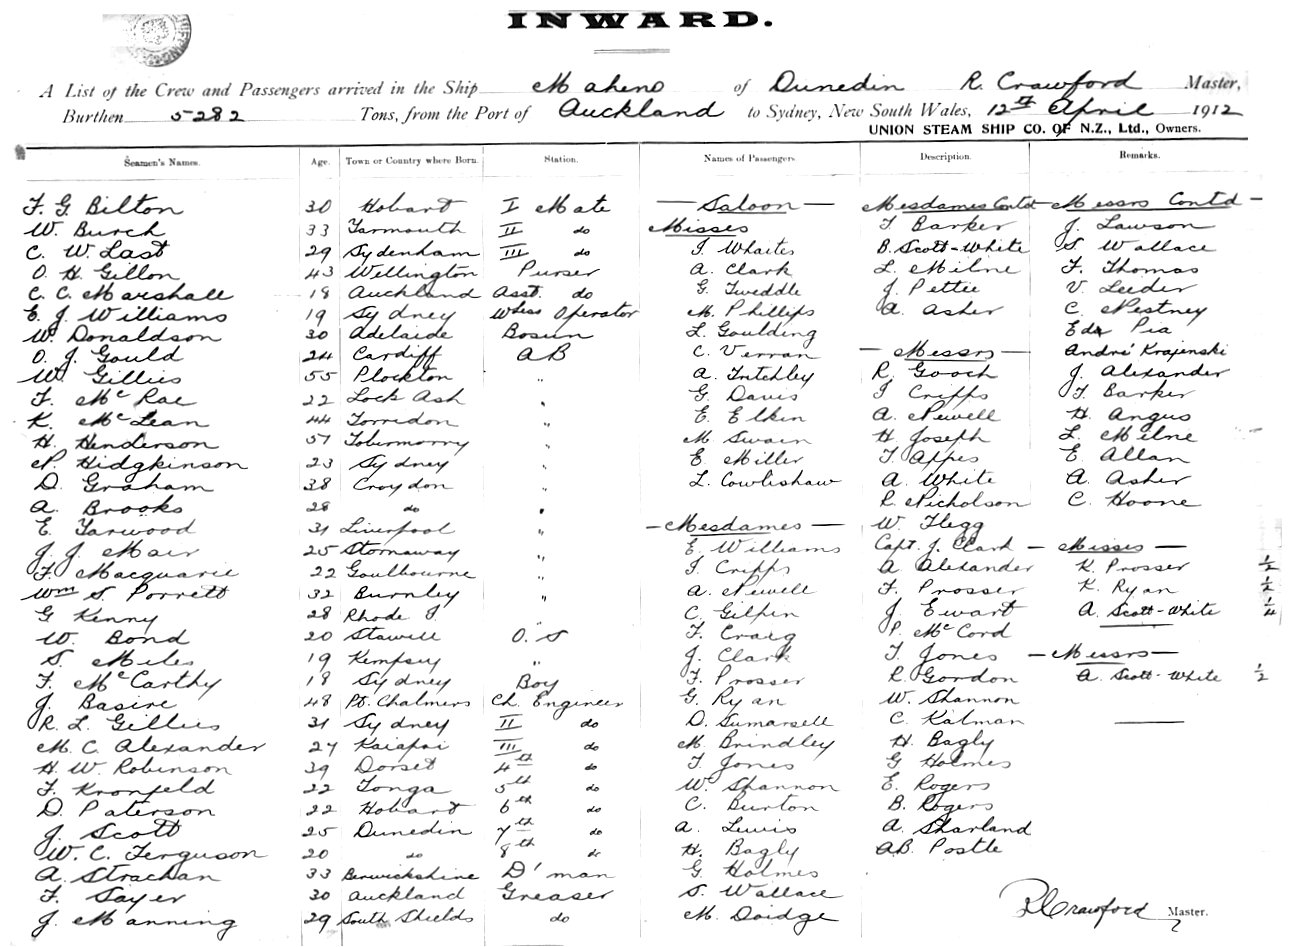 INWARD.
A List of the Crew and Passengers arrived in the Ship Maheno of Dunedin R. Crawford Master,
Burthen 5282 Tons, from the Port of Auckland to Sydney, New South Wales, 12th April 1912
UNION STEAM SHIP CO. OF N.Z., Ltd., Owners.
Seamen's Names. Age. Town or Country where Born. Station. Names of Passengers. Description. Remarks.
F. G. Bilton 30 Hobart I Mate — Saloon — Mesdames Contd — Messrs Contd —
W. Burch 33 Yarmouth II do Misses F Barker J. Lawson
C. W. Last 29 Sydenham III do I. Whaites B. Scott-White S Wallace
O. H. Gillon 43 Wellington Purser A. Clark L. Milne F. Thomas
C. C. Marshall 18 Auckland Asst. do G. Tweddle J. Pettie V. Leeder
E. J. Williams 19 Sydney Wless Operator M. Phillips A. Asher C. Nestney
W. Donaldson 30 Adelaide Bosun L. Goulding Pia
O. J. Gould 24 Cardiff AB C. Verran — Messrs — André Krajenski
W. Gillies 55 Plockton " A. Tritchley R. Gooch J. Alexander
F. McRae 22 Lock Ash " G. Davis I Cripps F. Barker
K. McLean 44 Torridon " E. Elkin A. Newell H. Angus
H. Henderson 57 Tobermorry " M. Swain H. Joseph L. Milne
N. Hidgkinson 23 Sydney " E Miller F. Appes E. Allan
D. Graham 38 Croydon " L. Cowlishaw A. White A. Asher
A. Brooks 28 do " R. Nicholson C. Hoone
E. Yarwood 31 Liverpool " — Mesdames — W. Flegg
J. J. Mair 25 Stornaway " E. Williams Capt. J. Clark — Misses —
F. Macquarie 22 Goulbourne " I. Cripps A Alexander K. Prosser 1/2
Wm S. Porrett 32 Burnley " A. Newell F. Prosser K. Ryan 1/2
G Kenny 28 Rhode I " C. Gilpin J. Ewart A. Scott-White 1/4
W. Bond 20 Stawell O.S F. Craig P. McCord
S. Miles 19 Kempsey " J. Clark F. Jones — Messrs —
F. McCarthy 18 Sydney Boy F. Prosser R. Gordon A. Scott-White 1/2
J. Basire 48 Pt. Chalmers Ch. Engineer G. Ryan W. Shannon
R. L. Gillies 31 Sydney II do D. Sumarsell C. Kalman
M. C. Alexander 27 Kaiapoi III do M. Brindley H. Bagly
H. W. Robinson 39 Dorset 4th do F Jones G Holmes
F. Kronfeld 22 Tonga 5th do W. Shannon E. Rogers
D. Paterson 22 Hobart 6th do C. Burton B. Rogers
J. Scott 25 Dunedin 7th do A. Lewis A. Sharland
W. C. Ferguson 20 do 8th do H. Bagly AB. Postle
A. Strachan 33 Berwickshire D'man G. Holmes
F. Sayer 30 Auckland Greaser S. Wallace
J. Manning 29 South Shields do M. Doidge
R Crawford Master.